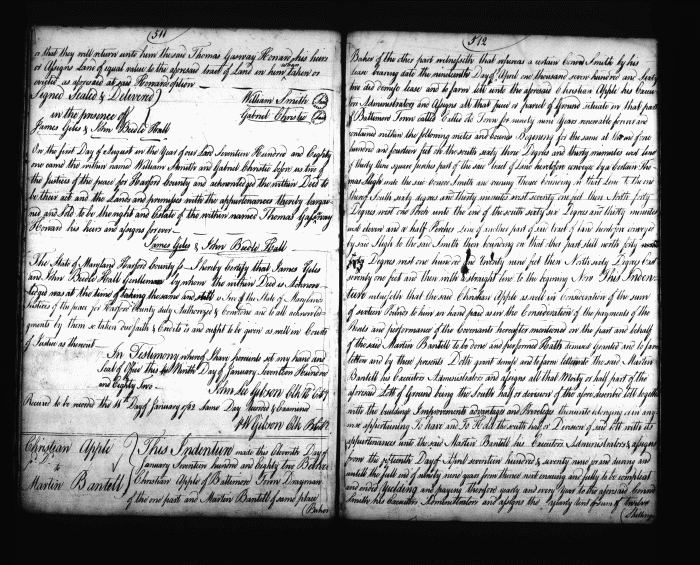 511
that they will return unto him the said Thomas Gassway Howard his heirs
or Assigns Land of equal value to the aforesaid tract of Land in when taken or
as aforesaid at said Howards option
Signed Sealed & Delivered
in the presence of
James Giles & John Bedle Hall
William Smith
Gabriel Christie
On the first Day of August in the Year of our Lord Seventeen Hundred and Eighty
one came the within named William Smith and Gabriel Christie before us two of
the Justices of the peace for Harford County and acknowledged the within Deed to
be their act and the Lands and premises with the appurtenances thereby bargai-
ned and sold to be the right and Estate of the within named Thomas Gassway
Howard his heirs and assigns forever
James Giles & John Bedle Hall
The State of Maryland Harford County Ss. I hereby Certify that James Giles
and John Bedle Hall Gentlemen by whom the within Deed is acknow-
ledged was at the time of taking the same and still is two of the State of Maryland
Justices of the peace for Harford County duly Authorized & Commissioned and to all acknowledg-
ments by them so taken due faith & Credit is and ought to be given as well in Courts
of Justice as thereout
In Testimony whereof I have hereunto set my hand and
Seal of Office this Month Day of January Seventeen Hundred
and Eighty two
John Lee Gibson Clk
Received to be recorded the 14th Day of January 1782 Same Day Recorded & Examined
W Gibson Clk
Christian Apple
to
Martin Bantell
This Indenture made this Eleventh Day of
January Seventeen hundred and Eighty two Between
Christian Apple of Baltimore Town Drayman
of the one part and Martin Bantell of same place
Baker
512
Baker of the other part witnesseth that whereas a certain Conrad Smith by his
lease bearing date the nineteenth Day of April one thousand seven hundred and seventy
nine did demise lease and to farm lett unto the aforesaid Christian Apple his Execu-
tors Administrators and Assigns all that piece or parcel of Ground situate in that part
of Baltimore Town called for ninety nine years renewable forever and
contained within the following metes and bounds Beginning for the same at
hundred and fourteen feet on the south sixty three Degrees and thirty minutes west line
of thirty nine square perches part of the said tract of Land heretofore conveyed by a Certain Tho-
mas Sligh unto the said Conrad Smith and running thence bounding on that line to the end
thereof South sixty degrees and thirty minutes west seventy one feet then North forty
Degrees west one Perch unto the end of the south sixty six Degrees and thirty minutes
west eleven and a half Perches line of another part of said tract of land heretofore conveyed
by said Sligh to the said Smith then bounding on that other part still north forty
Degrees west one hundred twenty nine feet then North sixty Degrees East
seventy one feet and then with a straight line to the beginning Now This Inden-
ture witnesseth that the said Christian Apple as well in Consideration of the sum
of sixteen Pounds to him in hand paid as in the Consideration of the payments of the
Rents and performance of the Covenants hereafter mentioned on the part and behalf
of the said Martin Bantell to be done and performed Hath demised Granted and to farm
letten and by these presents Doth grant demise and to farm lett unto the said Martin
Bantell his Executors Administrators and assigns all that Moiety or half part of the
aforesaid Lott of Ground being the South half or division of the afore described Lott together
with the building Improvements advantages and Privileges thereunto belonging or in any
wise appertaining To have and To Hold the south half or Division of said Lott with its
appurtenances unto the said Martin Bantell his Executors Administrators & assigns
from the sixteenth Day of April seventeen hundred & seventy nine and during and
untill the full end of ninety nine years from thence next ensuing and fully to be compleat
and ended Yielding and paying therefore yearly and every Year to the aforesaid Conrad
Smith his Executors Administrators and assigns the yearly Rent or sum of
Shillings